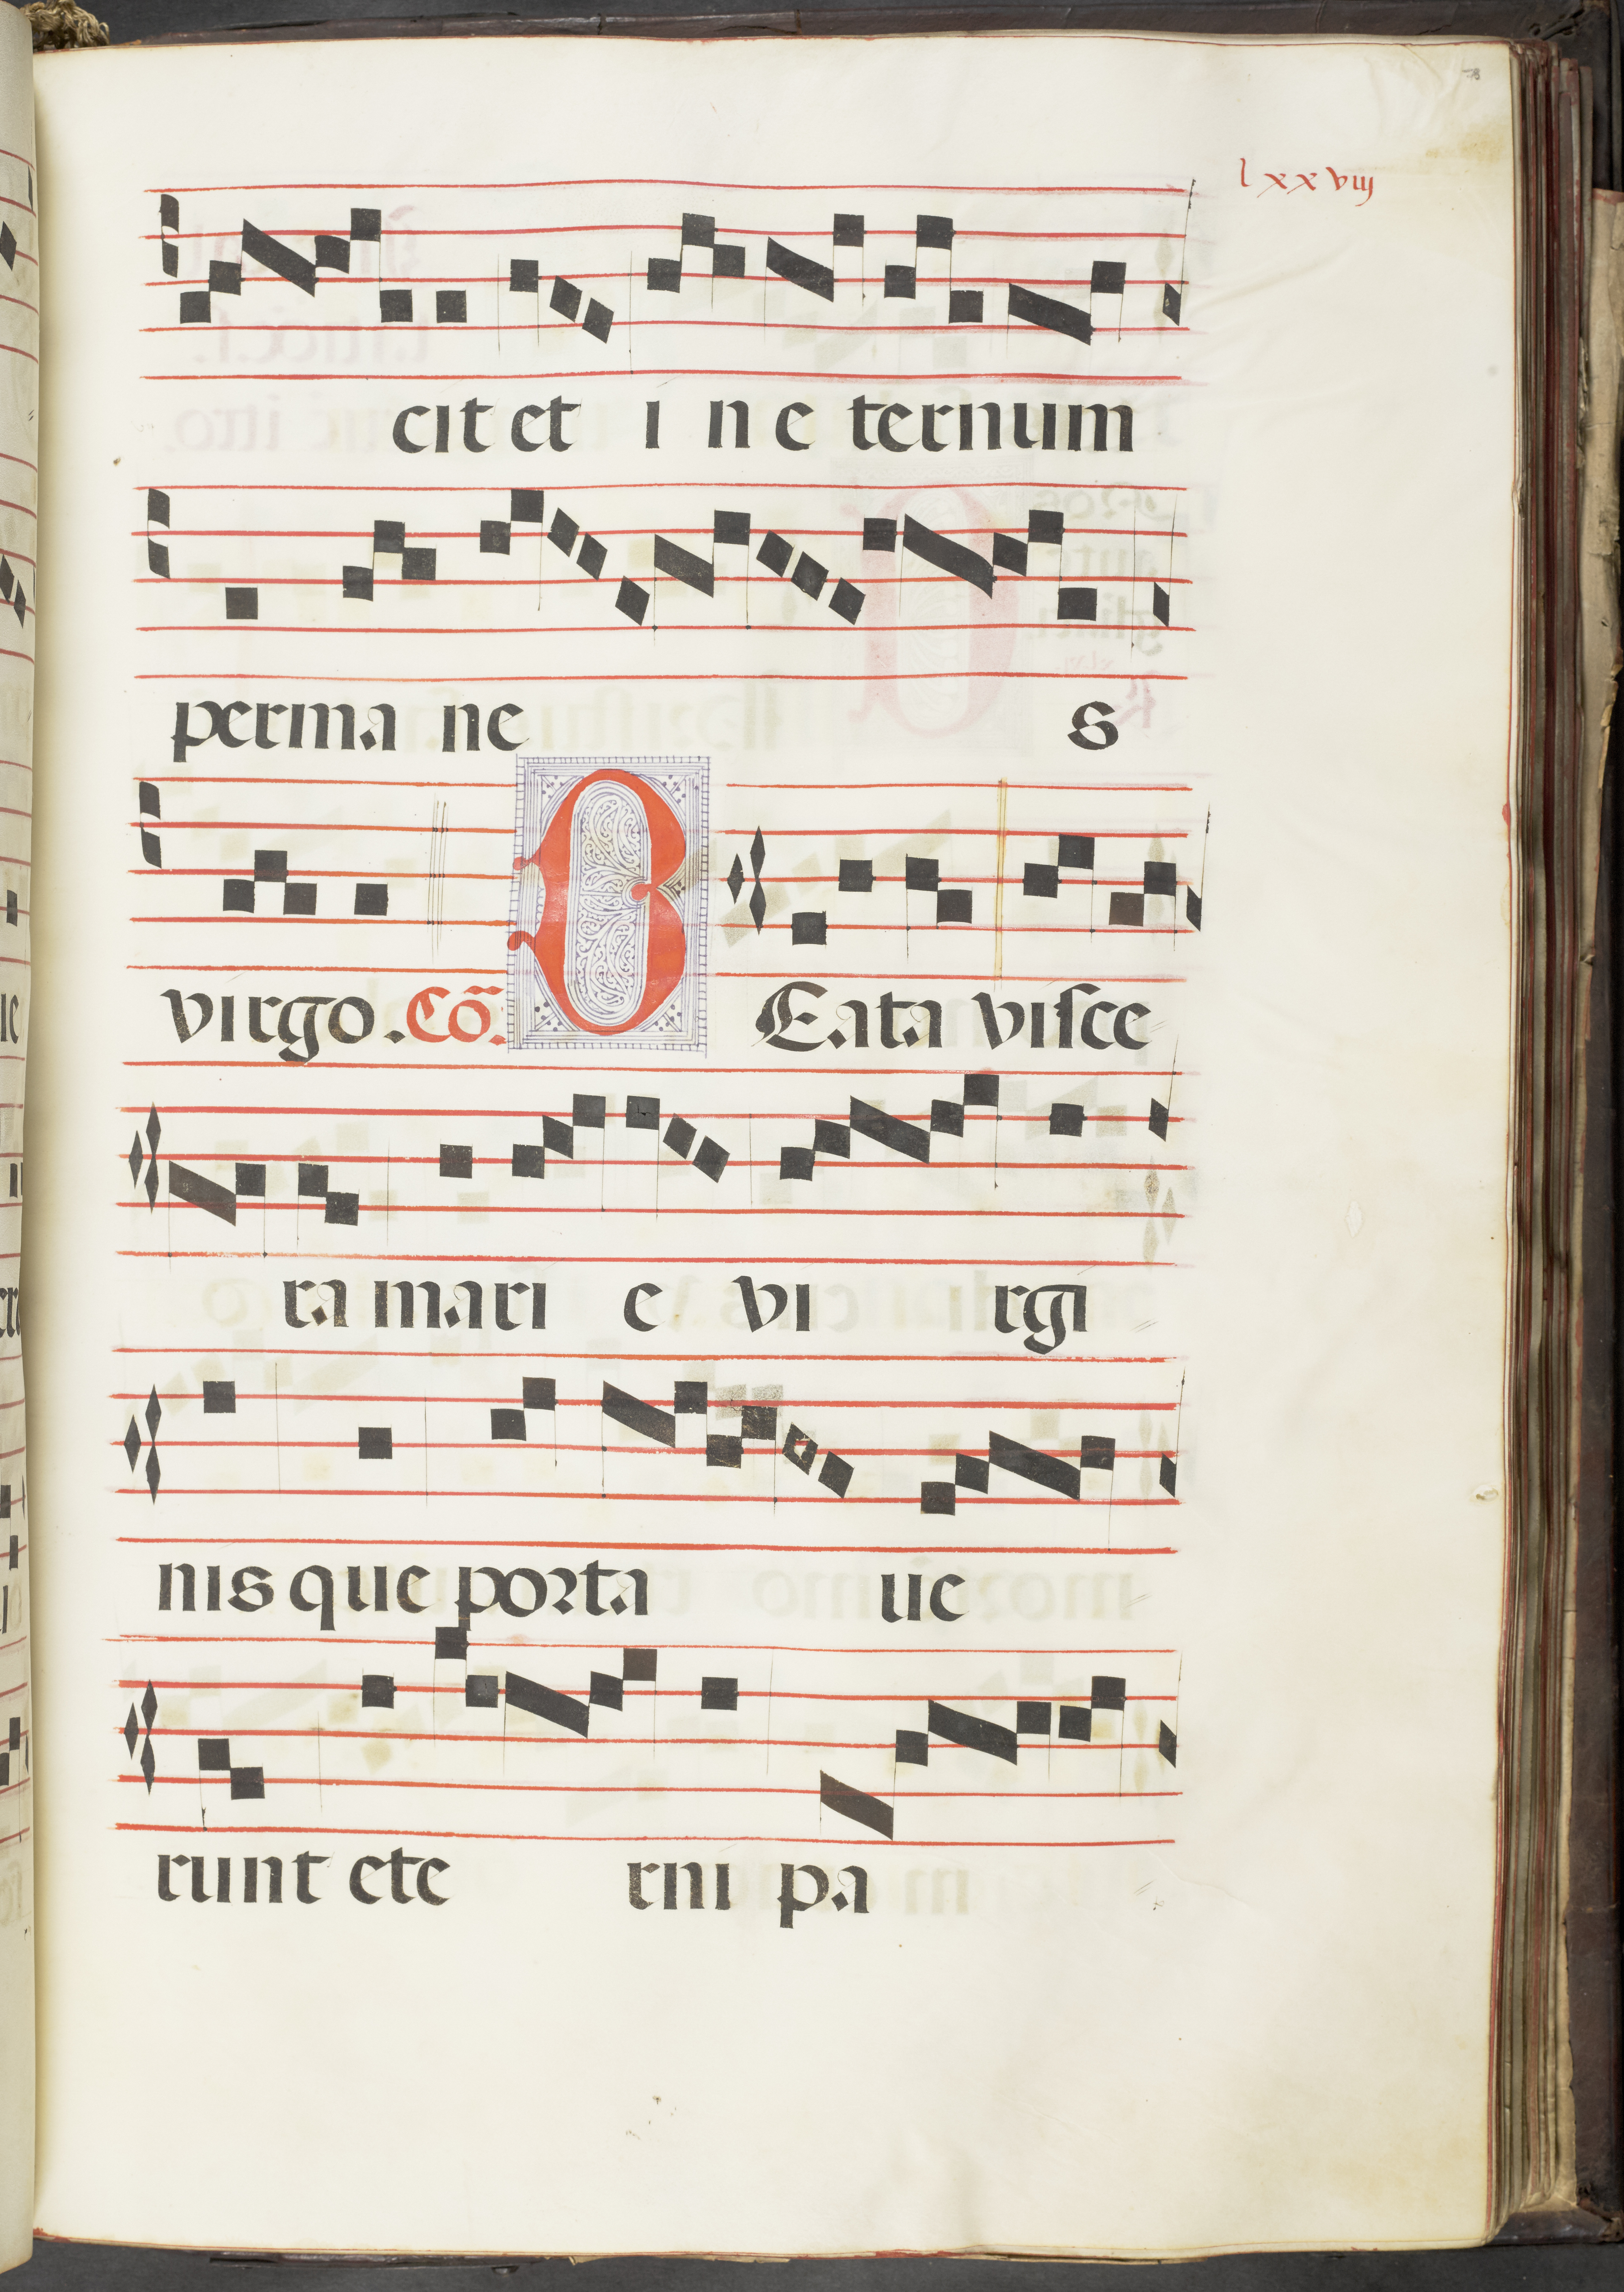 lxxviij
cit et i n e ternum
perma ne s
virgo. Cõ. B Eata visce
ra mari e vi rgi
nis que porta ue
runt ete rni pa